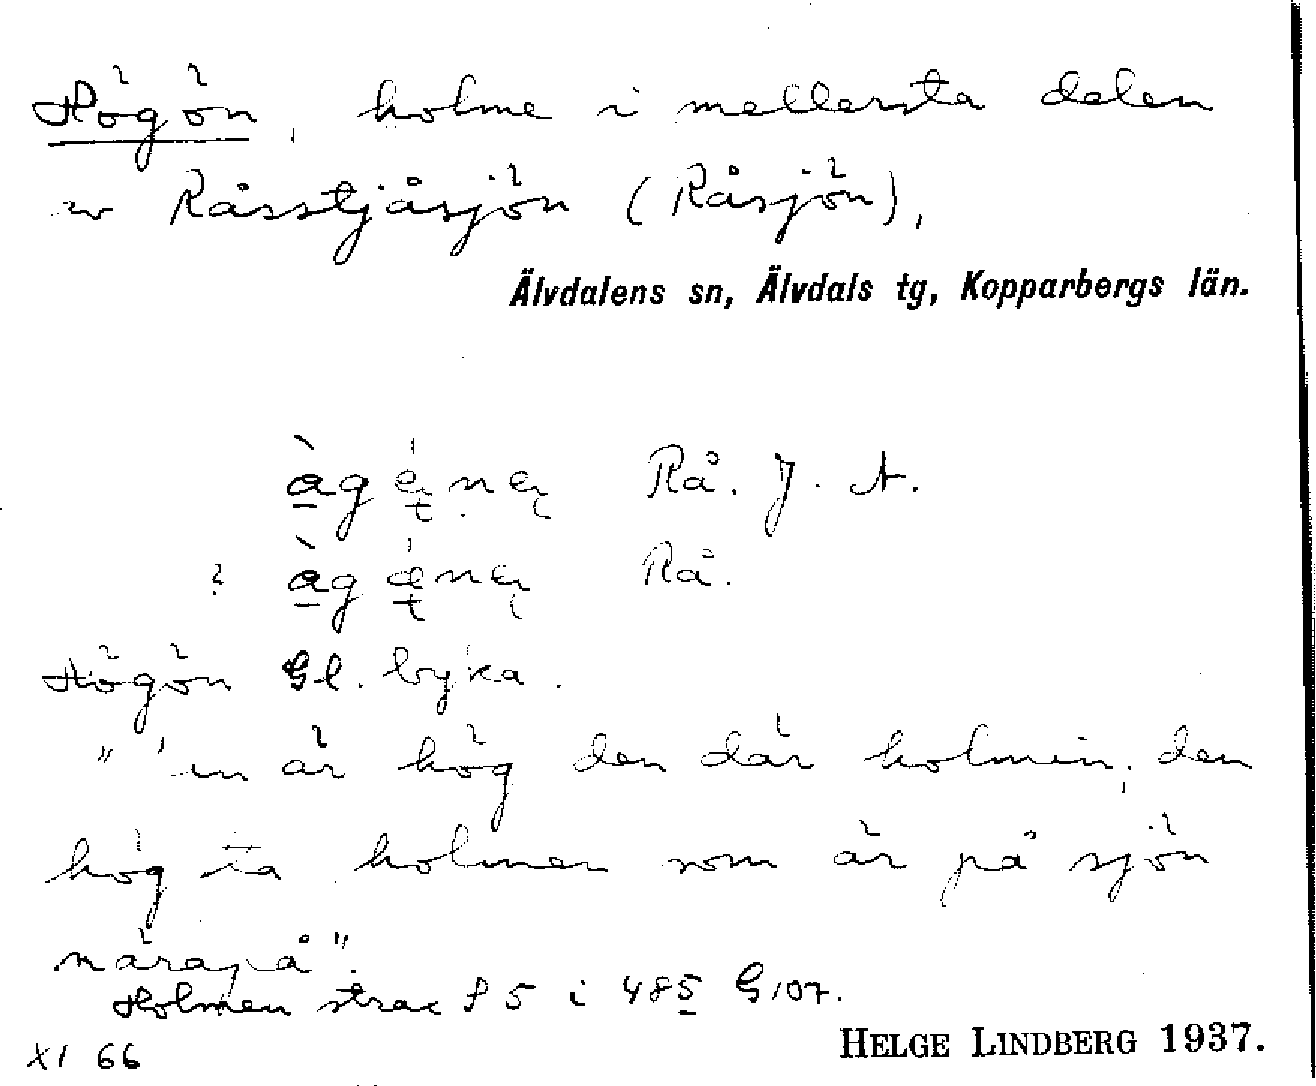 Högön, holme i mellersta delen
av Råsstjåsjön (Råsjön),
Älvdalens sn, Älvdals tg, Kopparbergs län.
Rå. J. A.
? Rå.
Högön Gl. byka.
"'en är hög den där holmen, den
högsta holmen som är på sjön
närapå".
Holmen strax 5 i 485 G107.
XI 66
HELGE LINDBERG 1937.